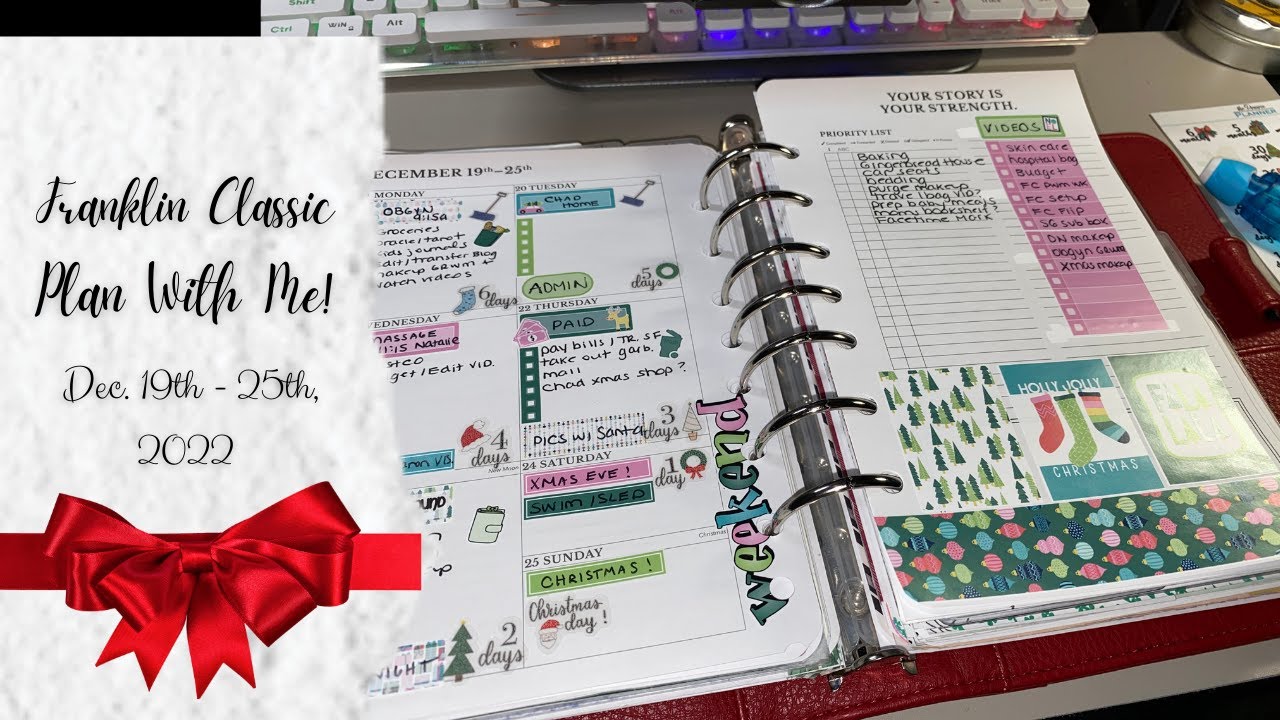 Shift
Ctrl
WiN
Alt
Alt
Ctrl
Franklin Classic
Plan With Me!
Dec. 19th - 25th,
2022
ECEMBER 19th–25th
MONDAY
OBGYN
Groceries
racie/tarot
ids journals
dit/transfer Blog
akeup GRWM
atch videos
6 days
20 TUESDAY
CHAD
HOME
ADMIN
5 days
EDNESDAY
MASSAGE
11:15 Natalie
get/Edit VID.
4 days
New Moon
22 THURSDAY
PAID
pay bills / TR. SF
take out garb.
mail
Chad xmas shop?
PICS w/ Santa
3 days
2 days
24 SATURDAY
XMAS EVE!
SWIM ISLED
1 day
25 SUNDAY
CHRISTMAS!
Christmas
day!
weekend
YOUR STORY IS
YOUR STRENGTH.
PRIORITY LIST
ABC
Baking
Gingerbread House
car seats
bedding
purge makeup
travel bag / No?
prep baby meals
mom bookshelf?
Facetime Mark
VIDEOS
skin care
hospital bag
Budget
FC pwm wk
FC setup
FC Flip
SG sub box
DN makeup
Obgyn GRWM
Xmas makeup
HOLLY JOLLY
CHRISTMAS
PLANNER